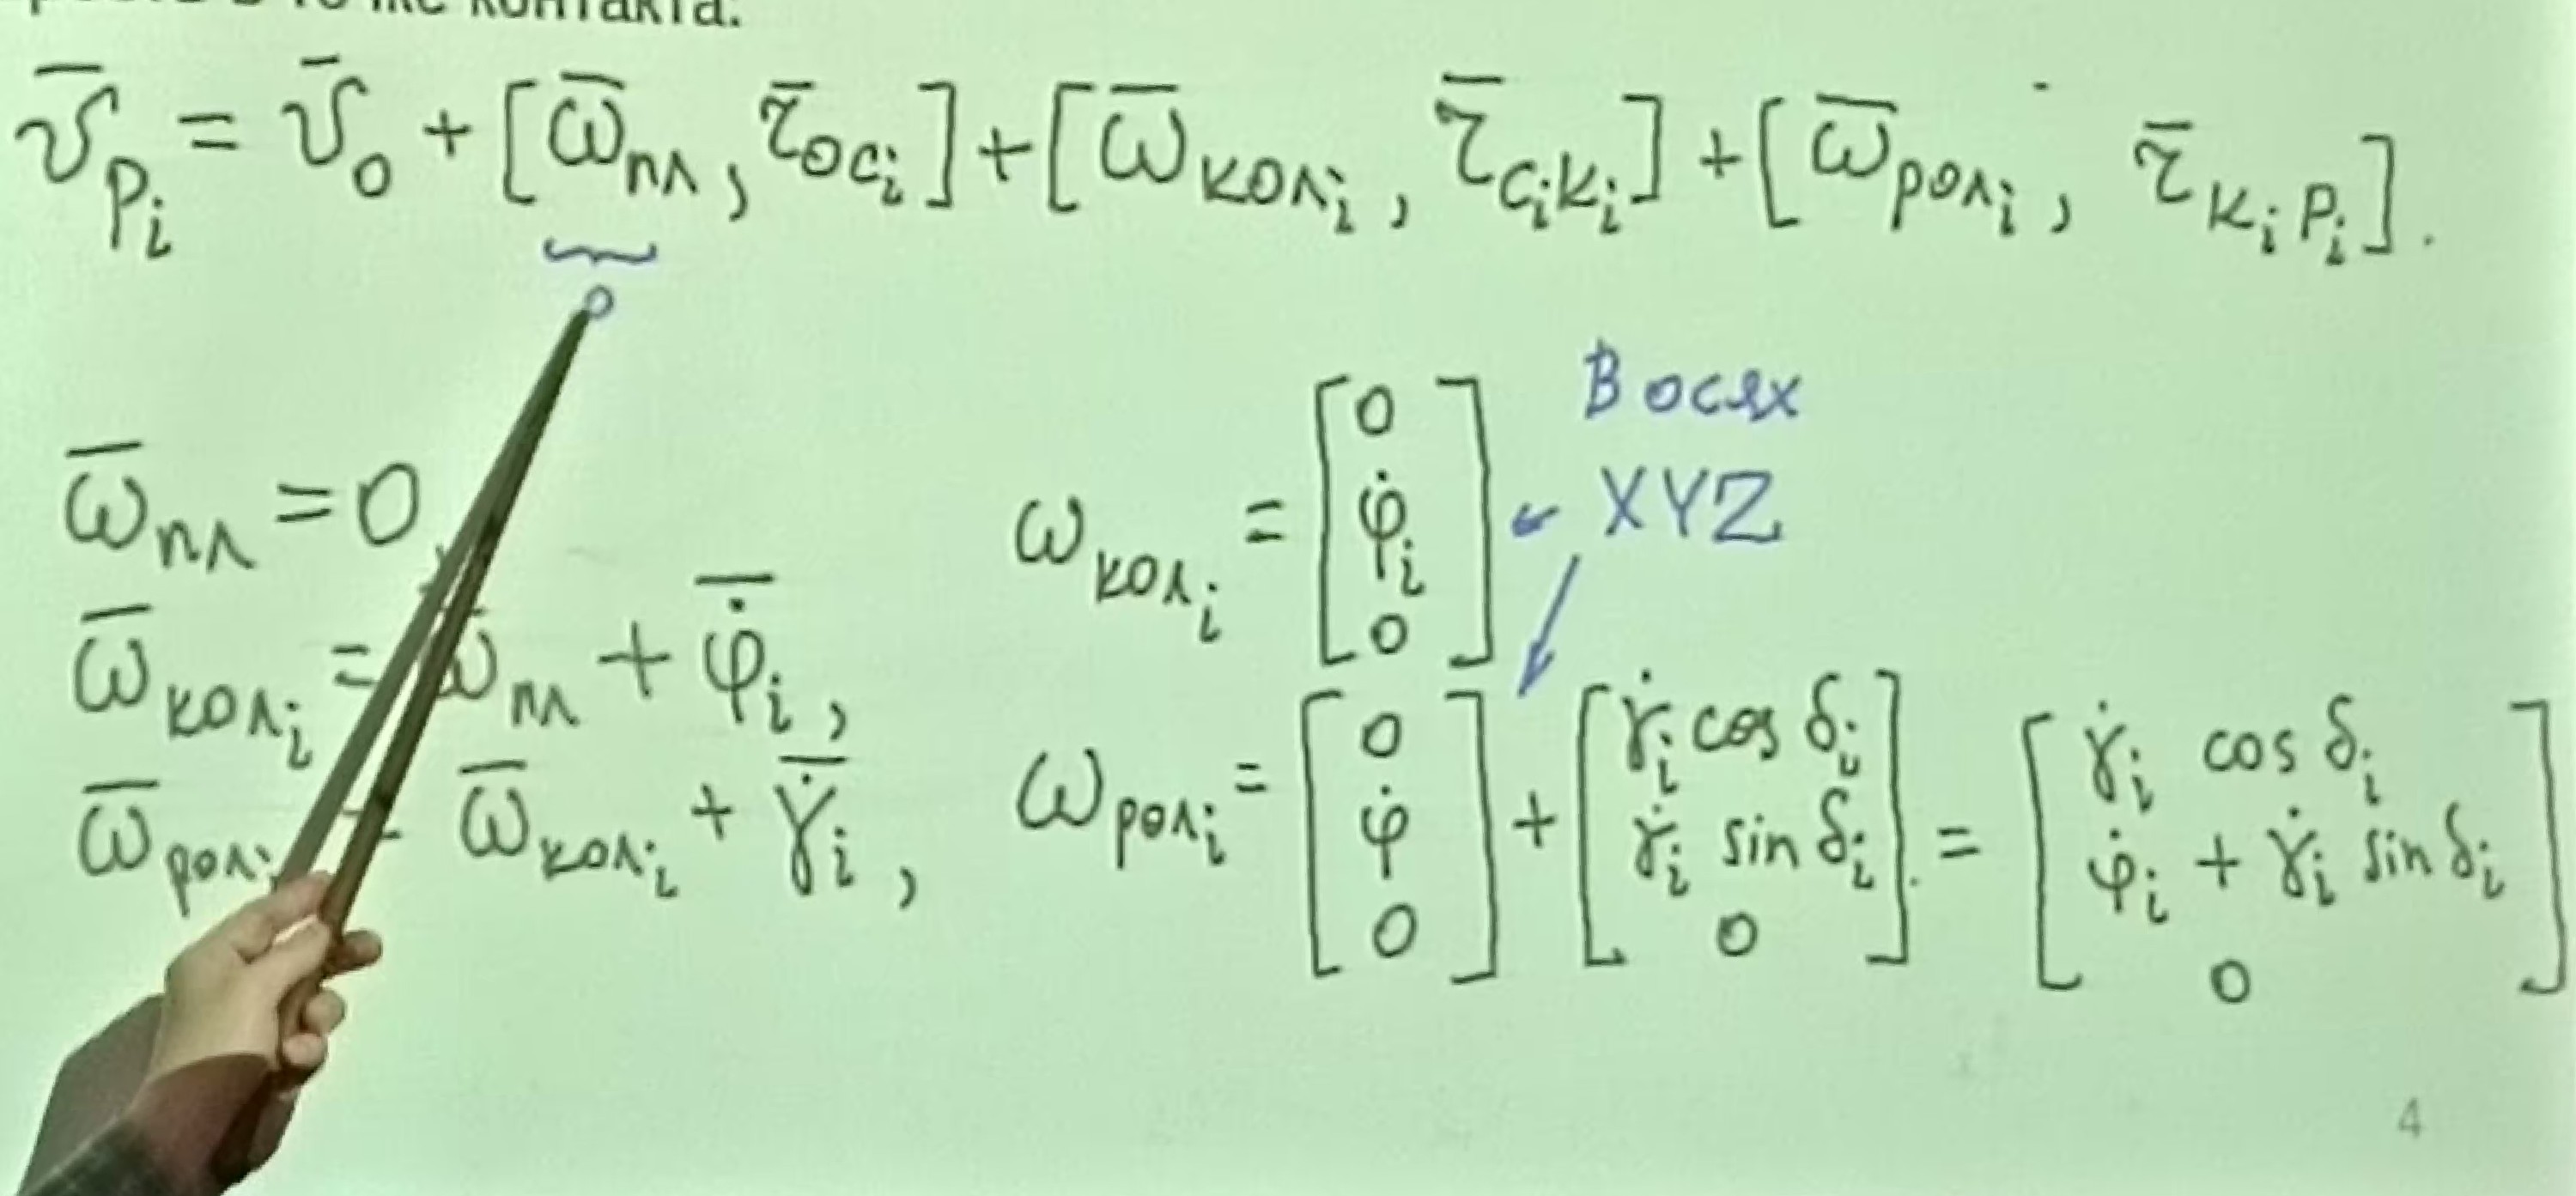 контакта.
v̄_Pi = v̄_0 + [ω̄_пл, r̄_OCi] + [ω̄_колi, r̄_CiKi] + [ω̄_ролi, r̄_KiPi].
0
ω̄_пл = 0
ω̄_колi = ω̄_пл + φ̇̄_i,
ω̄_ролi = ω̄_колi + γ̇̄_i,
В осях
XYZ
ω_колi = [0 φ̇_i 0]
ω_ролi = [0 φ̇ 0] + [γ̇_i cos δ_i γ̇_i sin δ_i 0] = [γ̇_i cos δ_i φ̇_i + γ̇_i sin δ_i 0]
4